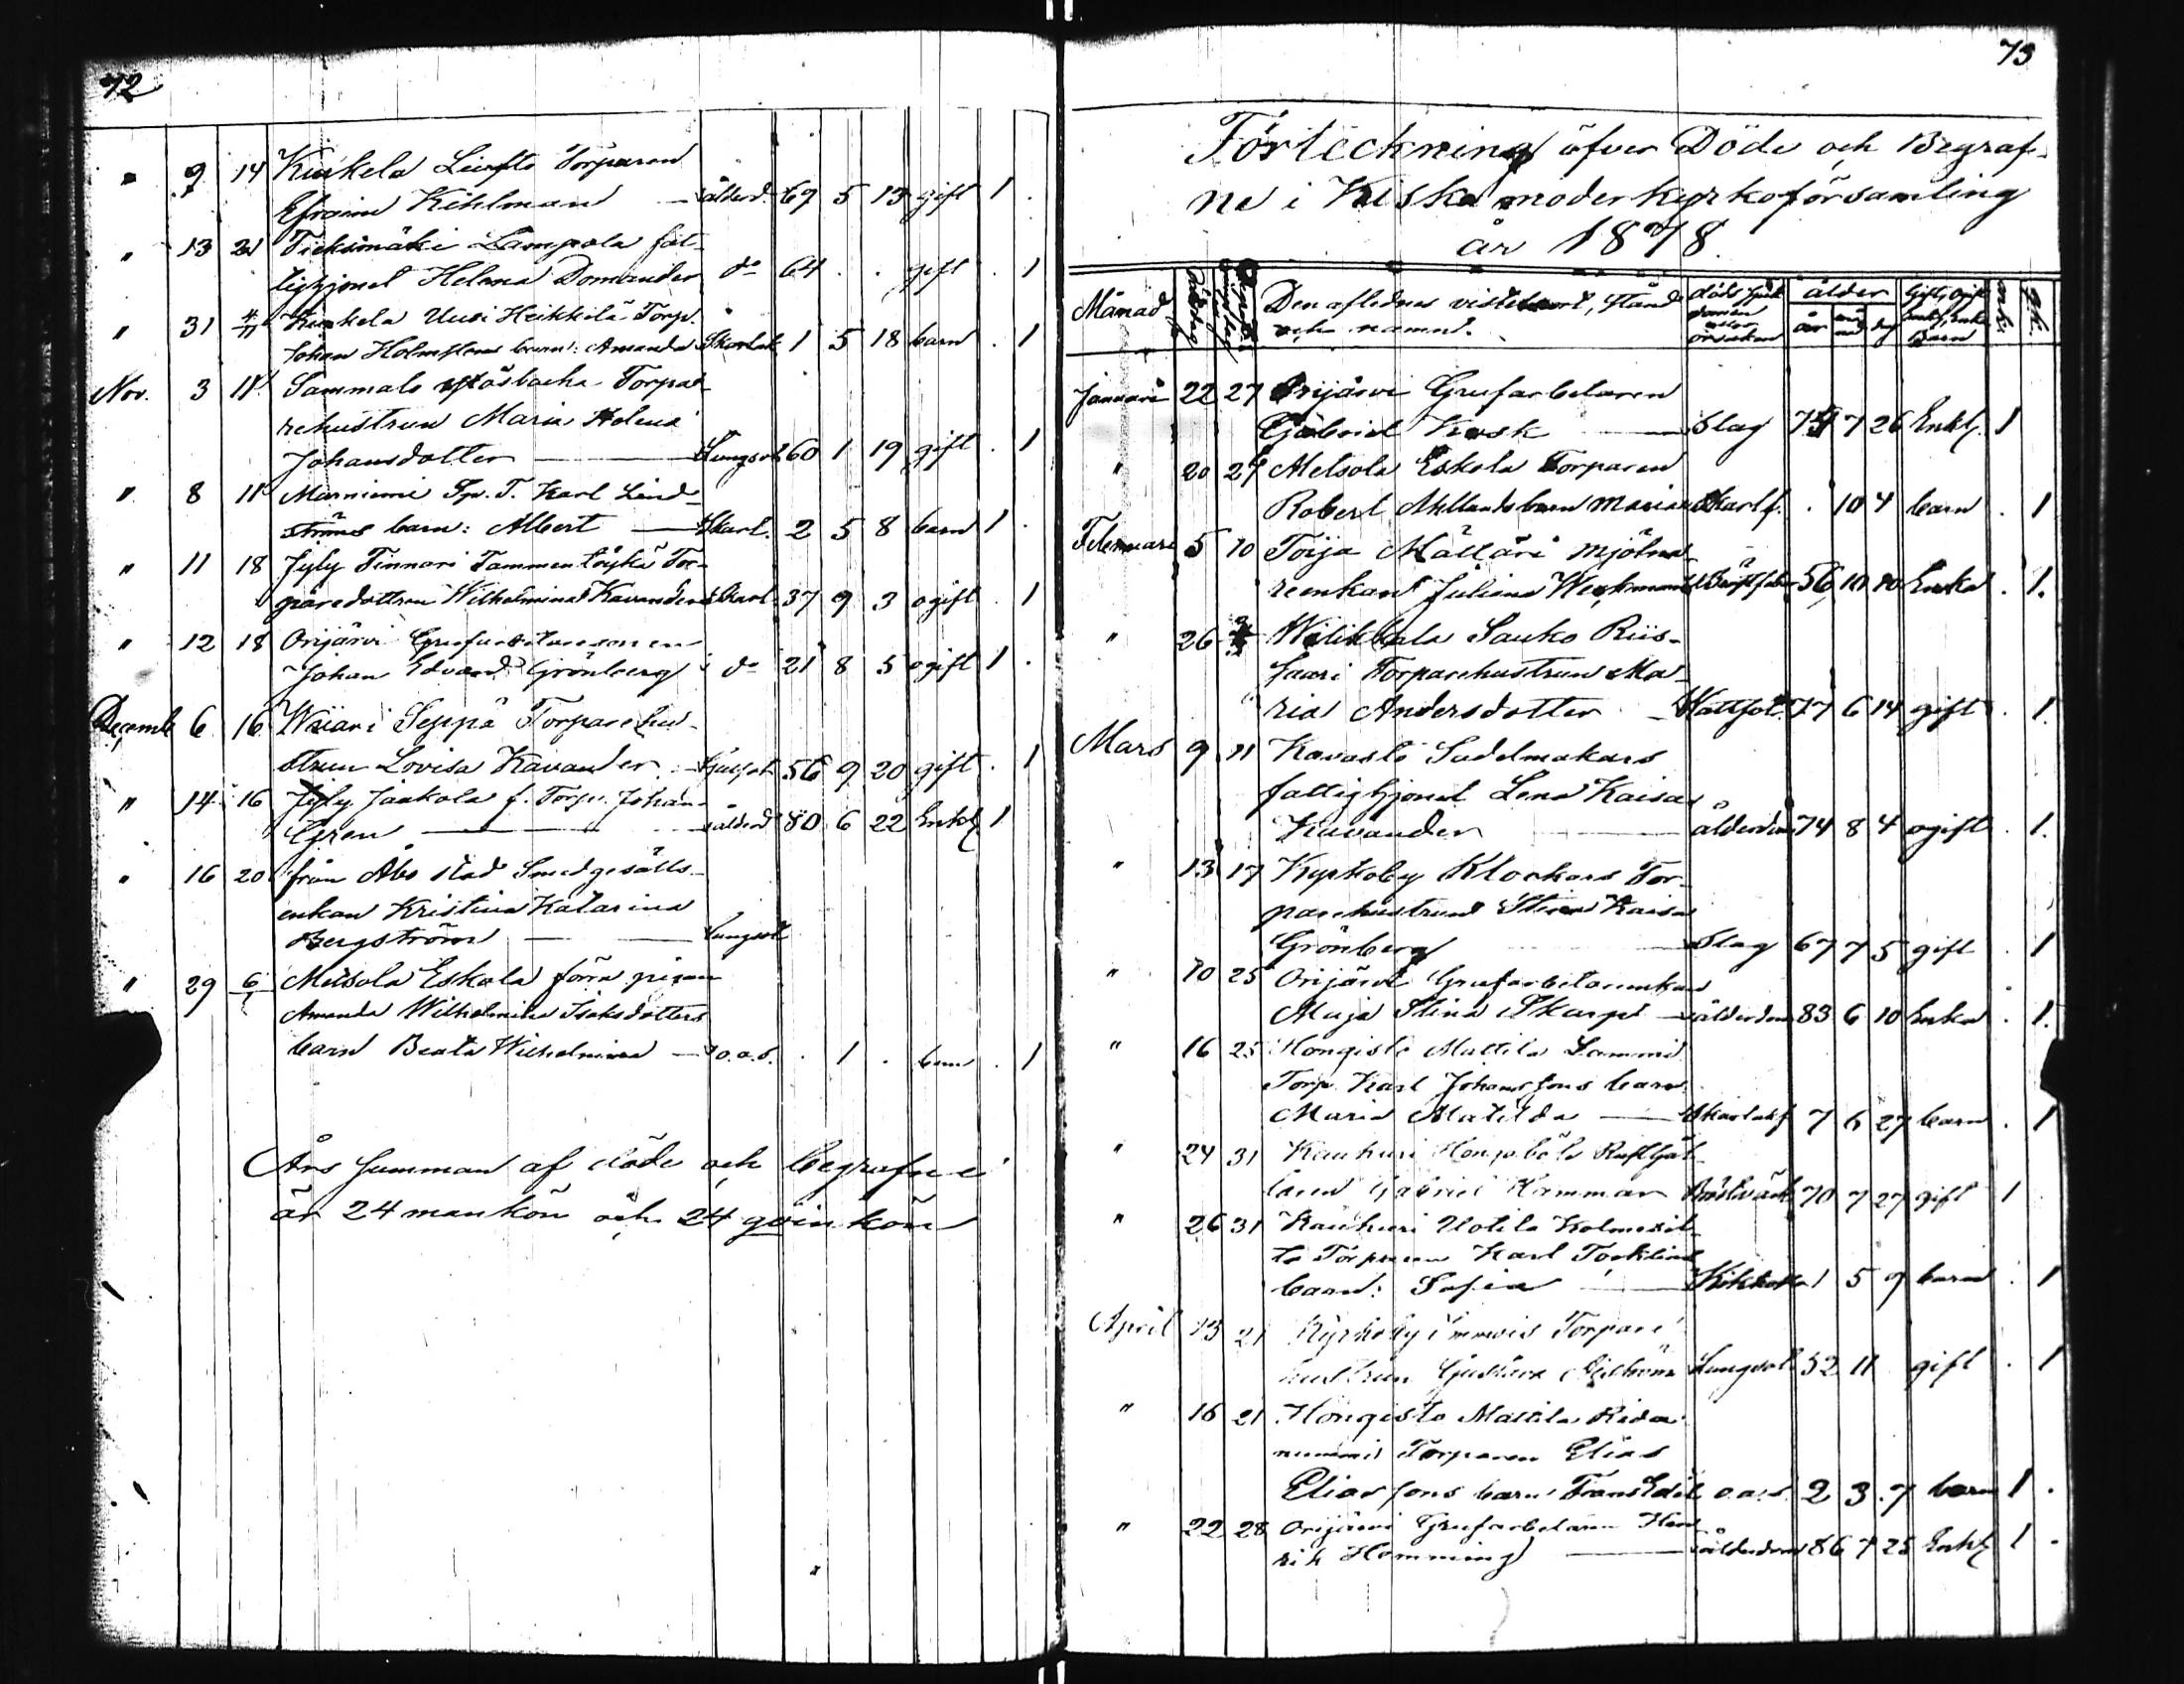 72
" 9 14 Kurkela Torparen
Efraim Kihlman — ålderd. 67 5 13 gift 1 .
" 13 21 Lampola fat-
tighjonet Helena Domander do 64 . . gift . 1
" 31 4/11 Kurkela Uusi Heikkilä Torp.
Johan Holmstens barn: Amanda Skarlak 1 5 18 barn . 1
Nov. 3 11 Sammalo Torpar-
rehustrun Maria Helena
Johansdotter — Lungsot 60 1 19 gift . 1
" 8 11 Marniemi Tp. T. Karl Lind-
ströms barn: Albert — Skarl. 2 5 8 barn 1 .
" 11 18 Jyly Finnari Tammentöykä Tor-
paredottren Wilhelmina Kavander Skarl. 37 9 3 ogift . 1
" 12 18 Orijärvi Grufarbetaresonen
Johan Edvard Grönberg do 21 8 5 ogift 1 .
Decemb 6 16 Seppä Torparehu-
strun Lovisa Kavander — 56 9 20 gift . 1
" 14 16 Jyly Jaakola f. Torp. Johan
Gren — ålderd 80 6 22 Enkl. 1
" 16 20 från Åbo stad Smedgesälls-
enkan Kristina Katarina
Bergström — Lungsot
" 29 6/1 Metsola Eskola förra pigan
Amanda Wilhelmina Isaksdotters
barn Beata Wilhelmina — o.a.s. . 1 . barn . 1
Års summan af döde och begrafne
är 24 mankön och 24 qvinkön
73
Förteckning öfver Döde och Begraf-
ne i Kisko moderkyrkoförsamling
år 1878.
Månad Den aflednes vistelseort, stånd ålder Gift, ogift mk. qk.
och namn. år dag Barn
Januari 22 27 Orijärvi Grufarbetaren
Gabriel Kusk — Slag 74 7 26 Enkl. 1
" 20 27 Metsola Eskola Torparen
Robert barn Maria Skarl f. . 10 4 barn . 1
Februari 5 10 Toija Mälläri Mjölna-
reenkan Juliana Weckman 56 10 10 Enka . 1.
" 26 Sauko Riis-
saari Torparehustrun Ma-
ria Andersdotter — Wattsot 77 6 14 gift . 1.
Mars 9 11 Kavasto Sadelmakars
fattighjonet Lena Kaisa
Kavander — ålderdom 74 8 4 ogift . 1.
" 13 17 Kyrkoby Klockars Tor-
parehustrun Stina Kaisa
Grönberg — Slag 67 7 5 gift . 1
" 10 25 Orijärvi Grufarbetareenkan
Maja Stina Skarp — ålderdom 83 6 10 Enka . 1.
" 16 25 Hongisto Mattila Lammi
Torp. Karl Johanssons barn
Maria Matilda — Skarlakf 7 6 27 barn . 1
" 24 31 Kauhuri
Gabriel Hammar 70 7 27 gift 1
" 26 31 Kauhuri Uotila
Torparen Karl
barn: Sofia — Kikhosta 1 5 9 barn . 1
April 13 21 Kyrkoby Torpare
hustrun Gustava Lungsot 52 11 gift . 1
" 16 21 Hongisto Mattila
nummi Torparen Elias
Eliassons barn Frans Edel o.a.s. 2 3 7 barn 1 .
" 22 28 Orijärvi Grufarbetaren Hen-
rik Hamming — ålderdom 86 7 25 Enkl. 1 .